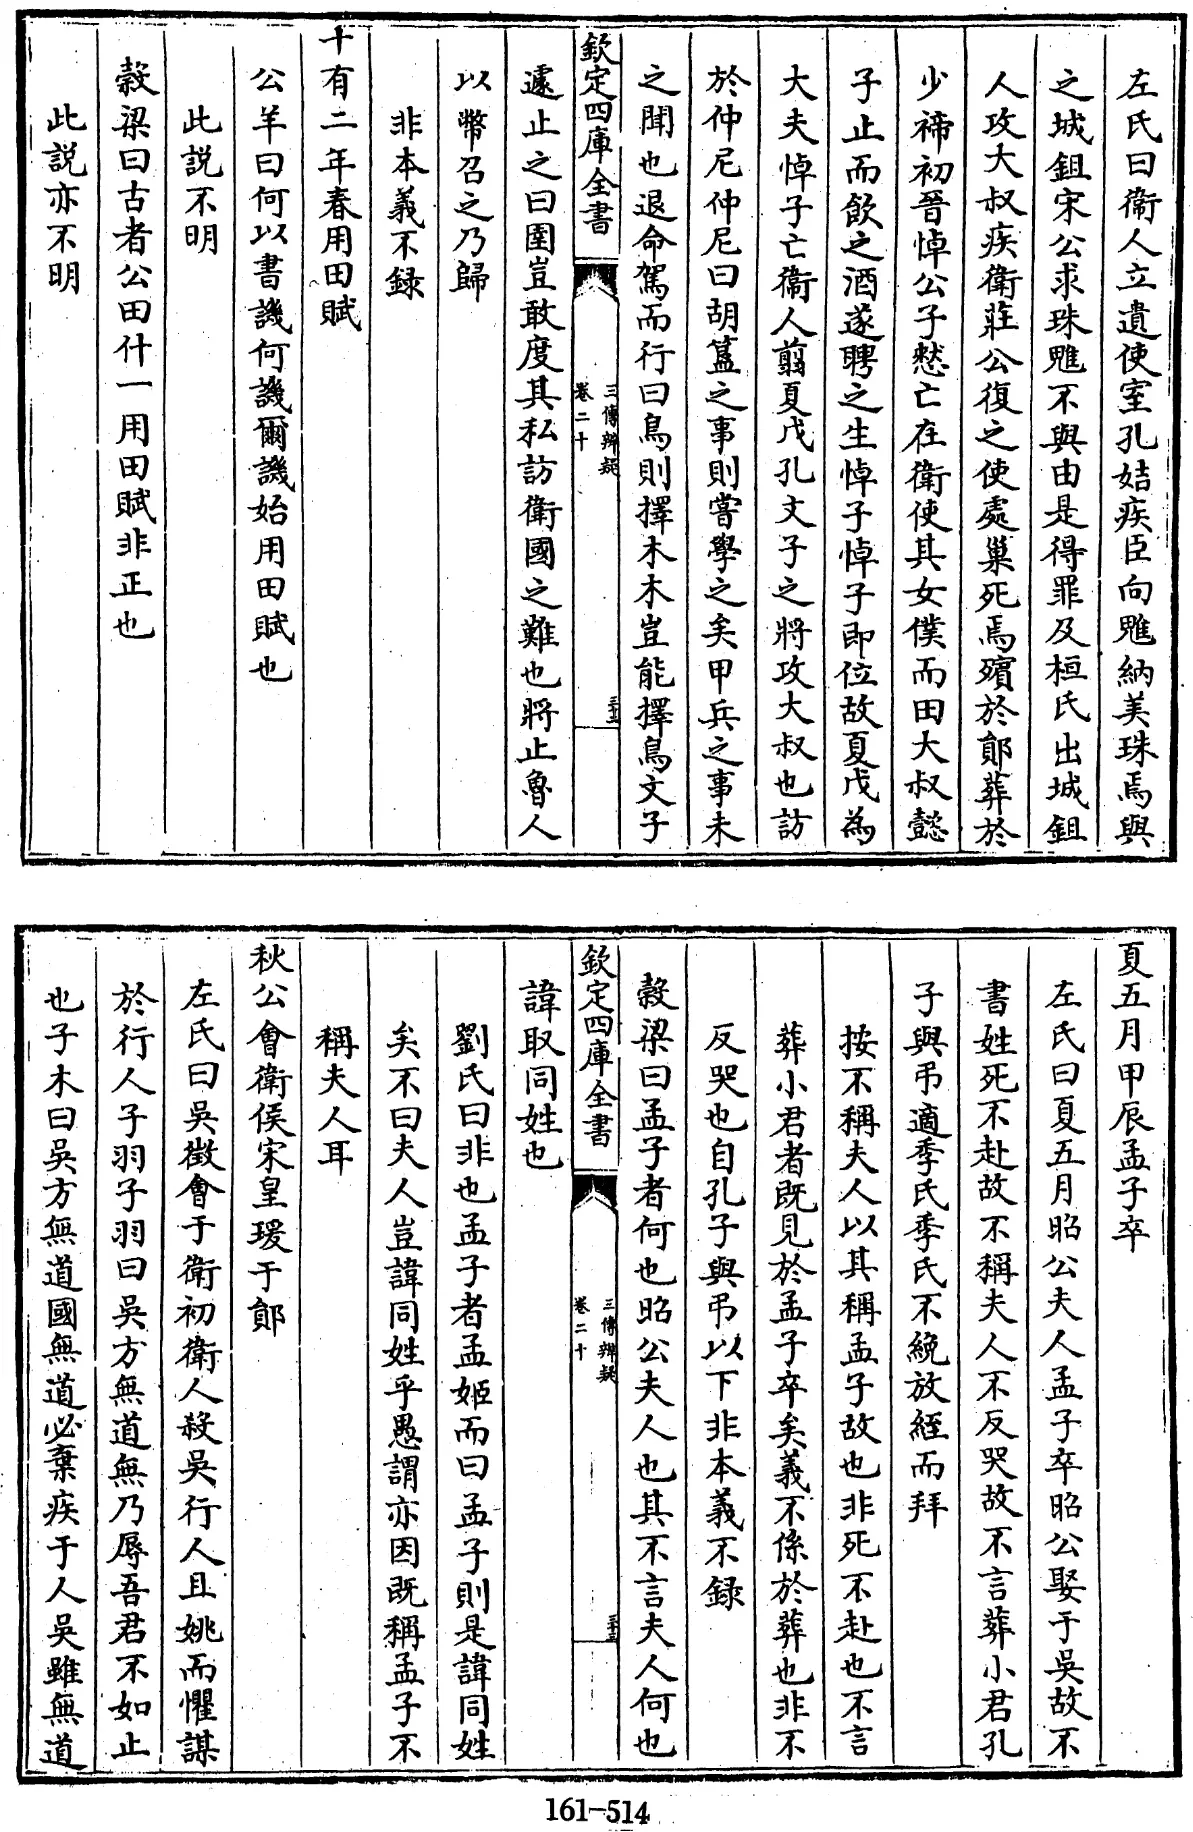 左氏曰衞人立遺使室孔姞疾臣向魋納美珠焉與
之城鉏宋公求珠魋不與由是得罪及桓氏出城鉏
人攻大叔疾衛莊公復之使處巢死焉殯於鄖葬於
少禘初晉悼公子憖亡在衛使其女僕而田大叔懿
子止而飲之酒遂聘之生悼子悼子即位故夏戊為
大夫悼子亡衞人翦夏戊孔文子之將攻大叔也訪
於仲尼仲尼曰胡簋之事則嘗學之矣甲兵之事未
之聞也退命駕而行曰鳥則擇木木豈能擇鳥文子
欽定四庫全書
三傳辨疑
卷二十
三十二
遽止之曰圉豈敢度其私訪衛國之難也將止魯人
以幣召之乃歸
非本義不録
十有二年春用田賦
公羊曰何以書譏何譏爾譏始用田賦也
此説不明
穀梁曰古者公田什一用田賦非正也
此説亦不明
夏五月甲辰孟子卒
左氏曰夏五月昭公夫人孟子卒昭公娶于吳故不
書姓死不赴故不稱夫人不反哭故不言葬小君孔
子與弔適季氏季氏不絻放絰而拜
按不稱夫人以其稱孟子故也非死不赴也不言
葬小君者既見於孟子卒矣義不係於葬也非不
反哭也自孔子與弔以下非本義不錄
穀梁曰孟子者何也昭公夫人也其不言夫人何也
欽定四庫全書
三傳辨疑
卷二十
三十三
諱取同姓也
劉氏曰非也孟子者孟姬而曰孟子則是諱同姓
矣不曰夫人豈諱同姓乎愚謂亦因既稱孟子不
稱夫人耳
秋公會衛侯宋皇瑗于鄖
左氏曰吳徵會于衛初衛人殺吳行人且姚而懼謀
於行人子羽子羽曰吳方無道無乃辱吾君不如止
也子木曰吳方無道國無道必棄疾于人吳雖無道
161-514